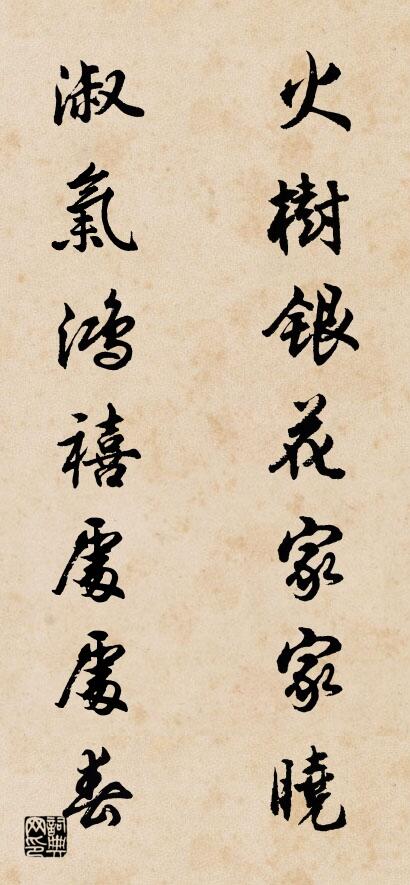 火樹銀花家家曉
淑氣鴻禧處處春
詞典网印